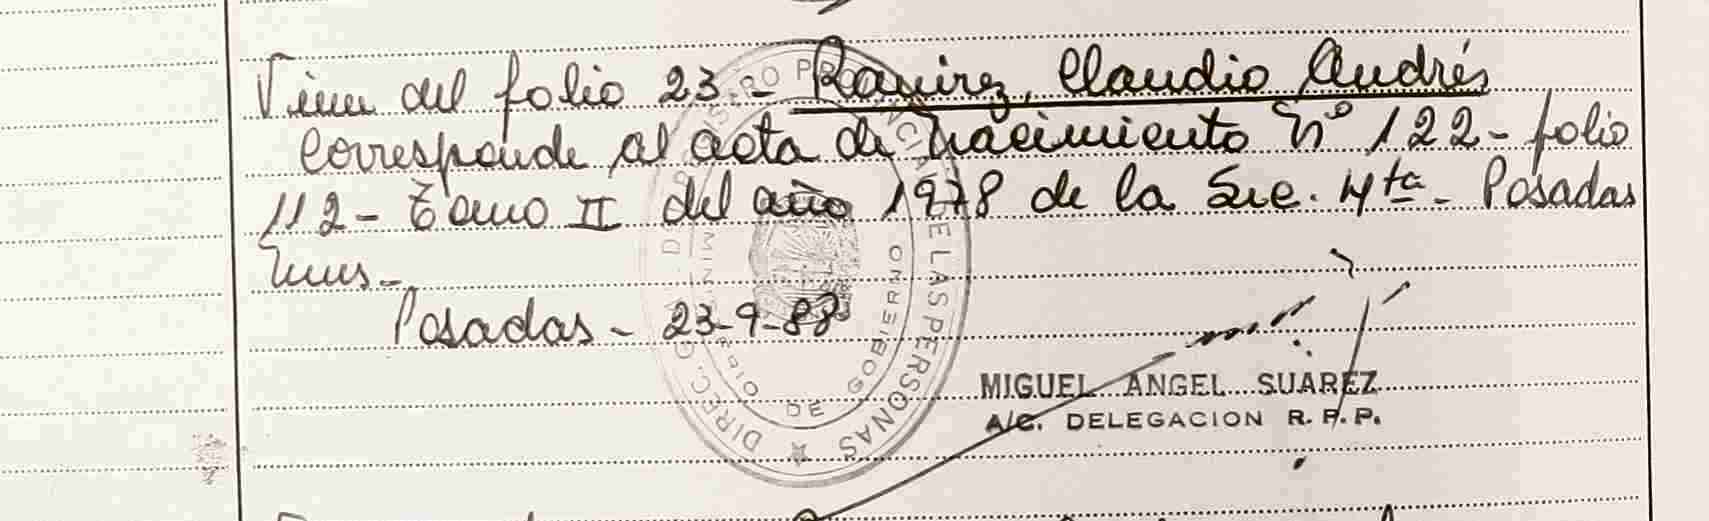 Viene del folio 23 - Ramirez, Claudio Andrés
Corresponde al acta de Nacimiento Nº 122 - folio
112 - Tomo II del año 1978 de la Sec. 4ta - Posadas
Mnes -
Posadas - 23-9-88
DIREC. G. DEL REGISTRO PROVINCIAL DE LAS PERSONAS
MINISTERIO DE GOBIERNO
MIGUEL ANGEL SUAREZ
A/C. DELEGACION R. P. P.